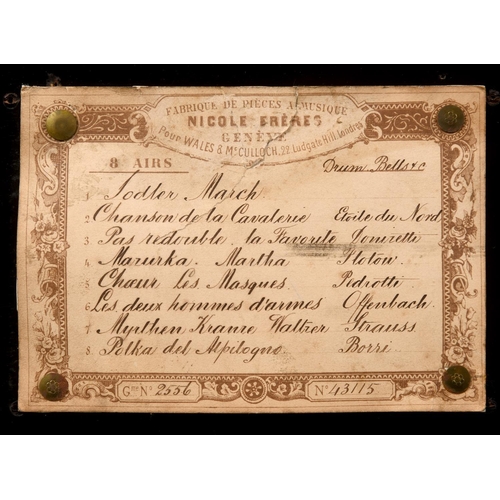 FABRIQUE DE PIÈCES A MUSIQUE
NICOLE FRÈRES
GENÈVE
Pour WALES & McCULLOCH, 22 Ludgate Hill, Londres
8 AIRS Drum Bells &c
1 Jodler March
2 Chanson de la Cavalerie Etoile du Nord
3 Pas redouble. la Favorite Donizetti
4 Mazurka. Martha Flotow
5 Chœur Les Masques. Pedrotti
6 Les deux hommes d'armes Offenbach
7 Myrthen Kranze Waltzer Strauss
8 Polka del Alpilogno Borri
Gme No 2556 No 43115